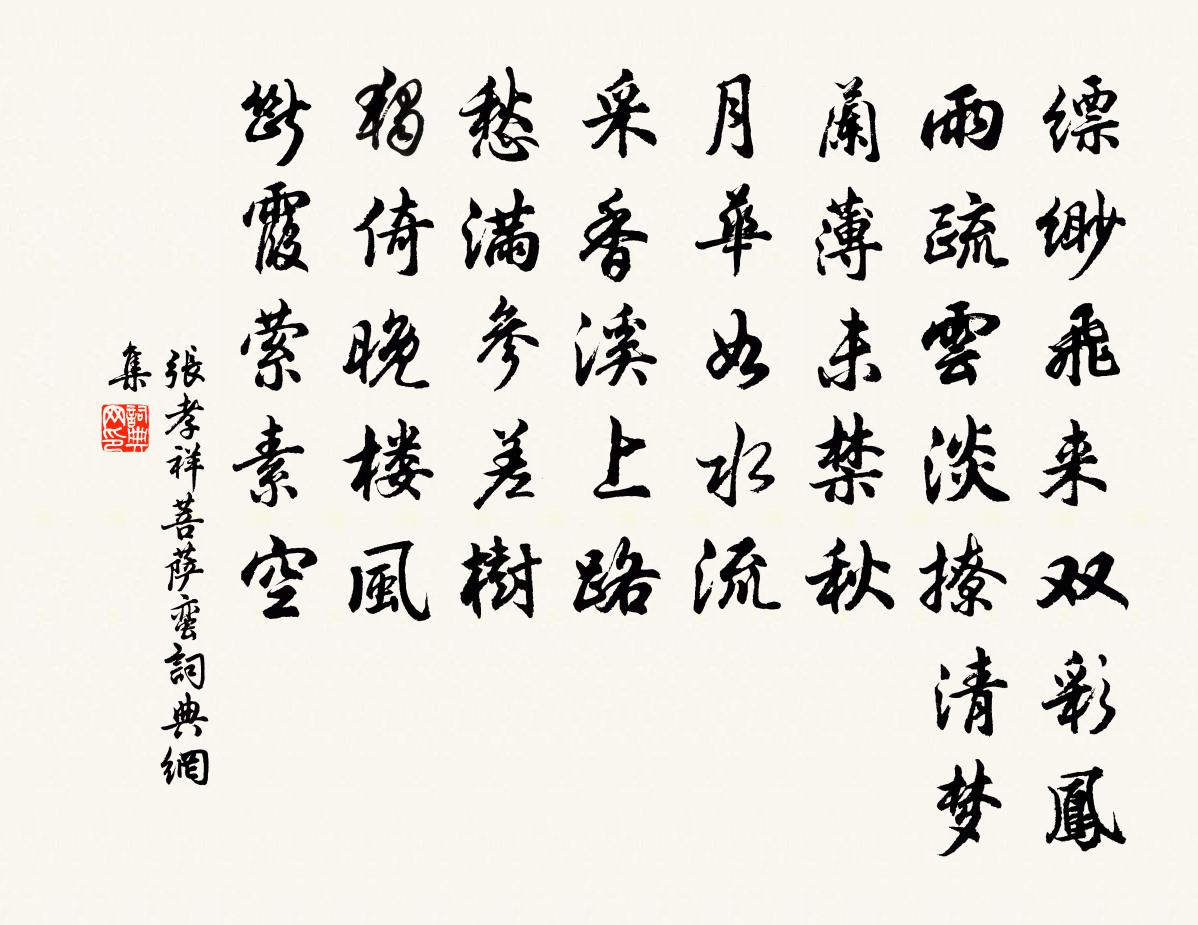 缥缈飛来双彩鳳
雨疏雲淡撩清梦
蘭薄未禁秋
月華如水流
采香溪上路
愁满参差樹
獨倚晚楼風
断霞縈素空
張孝祥菩萨蛮詞典網
集
詞典网印